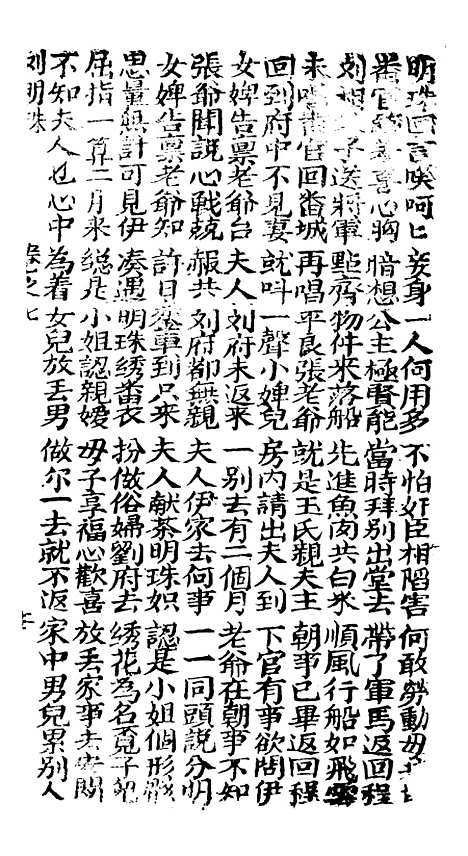 明珠回言唤呵匕 妾身一人何用多 不怕奸臣相陷害 何敢勞動毋
番官 喜心胸 暗想公主極賢能 當時拜别出堂去 帶了軍馬返回程
刘 子送將軍 點齊物件來落船 進魚肉共白米 順風行船如飛雲
未唱番官回番城 再唱平良張老爺 就是王氏親夫主 朝事已畢返回程
回到府中不見妻 就叫一聲小婢兒 房内請出夫人到 下官有事欲問伊
女婢告禀老爺台 夫人刘府未返來 一别去有二個月 老爺在朝事不知
張爺聞說心戰兢 赧共刘府都無親 夫人伊家去何事 一一同頭說分明
女婢告禀老爺知 許日蛮軍到只來 夫人献茶明珠姒 認是小姐個形骸
思量無計可見伊 凑遇明珠綉番衣 扮做俗婦劉府去 綉花為名覓子兒
屈指一算二月來 總是小姐認親嬡 毋子享福心歡喜 放丢家事去安閑
不知夫人乜心中 為着女兒放丢男 做尔一去就不返 家中男兒累别人
刘明珠 卷之七